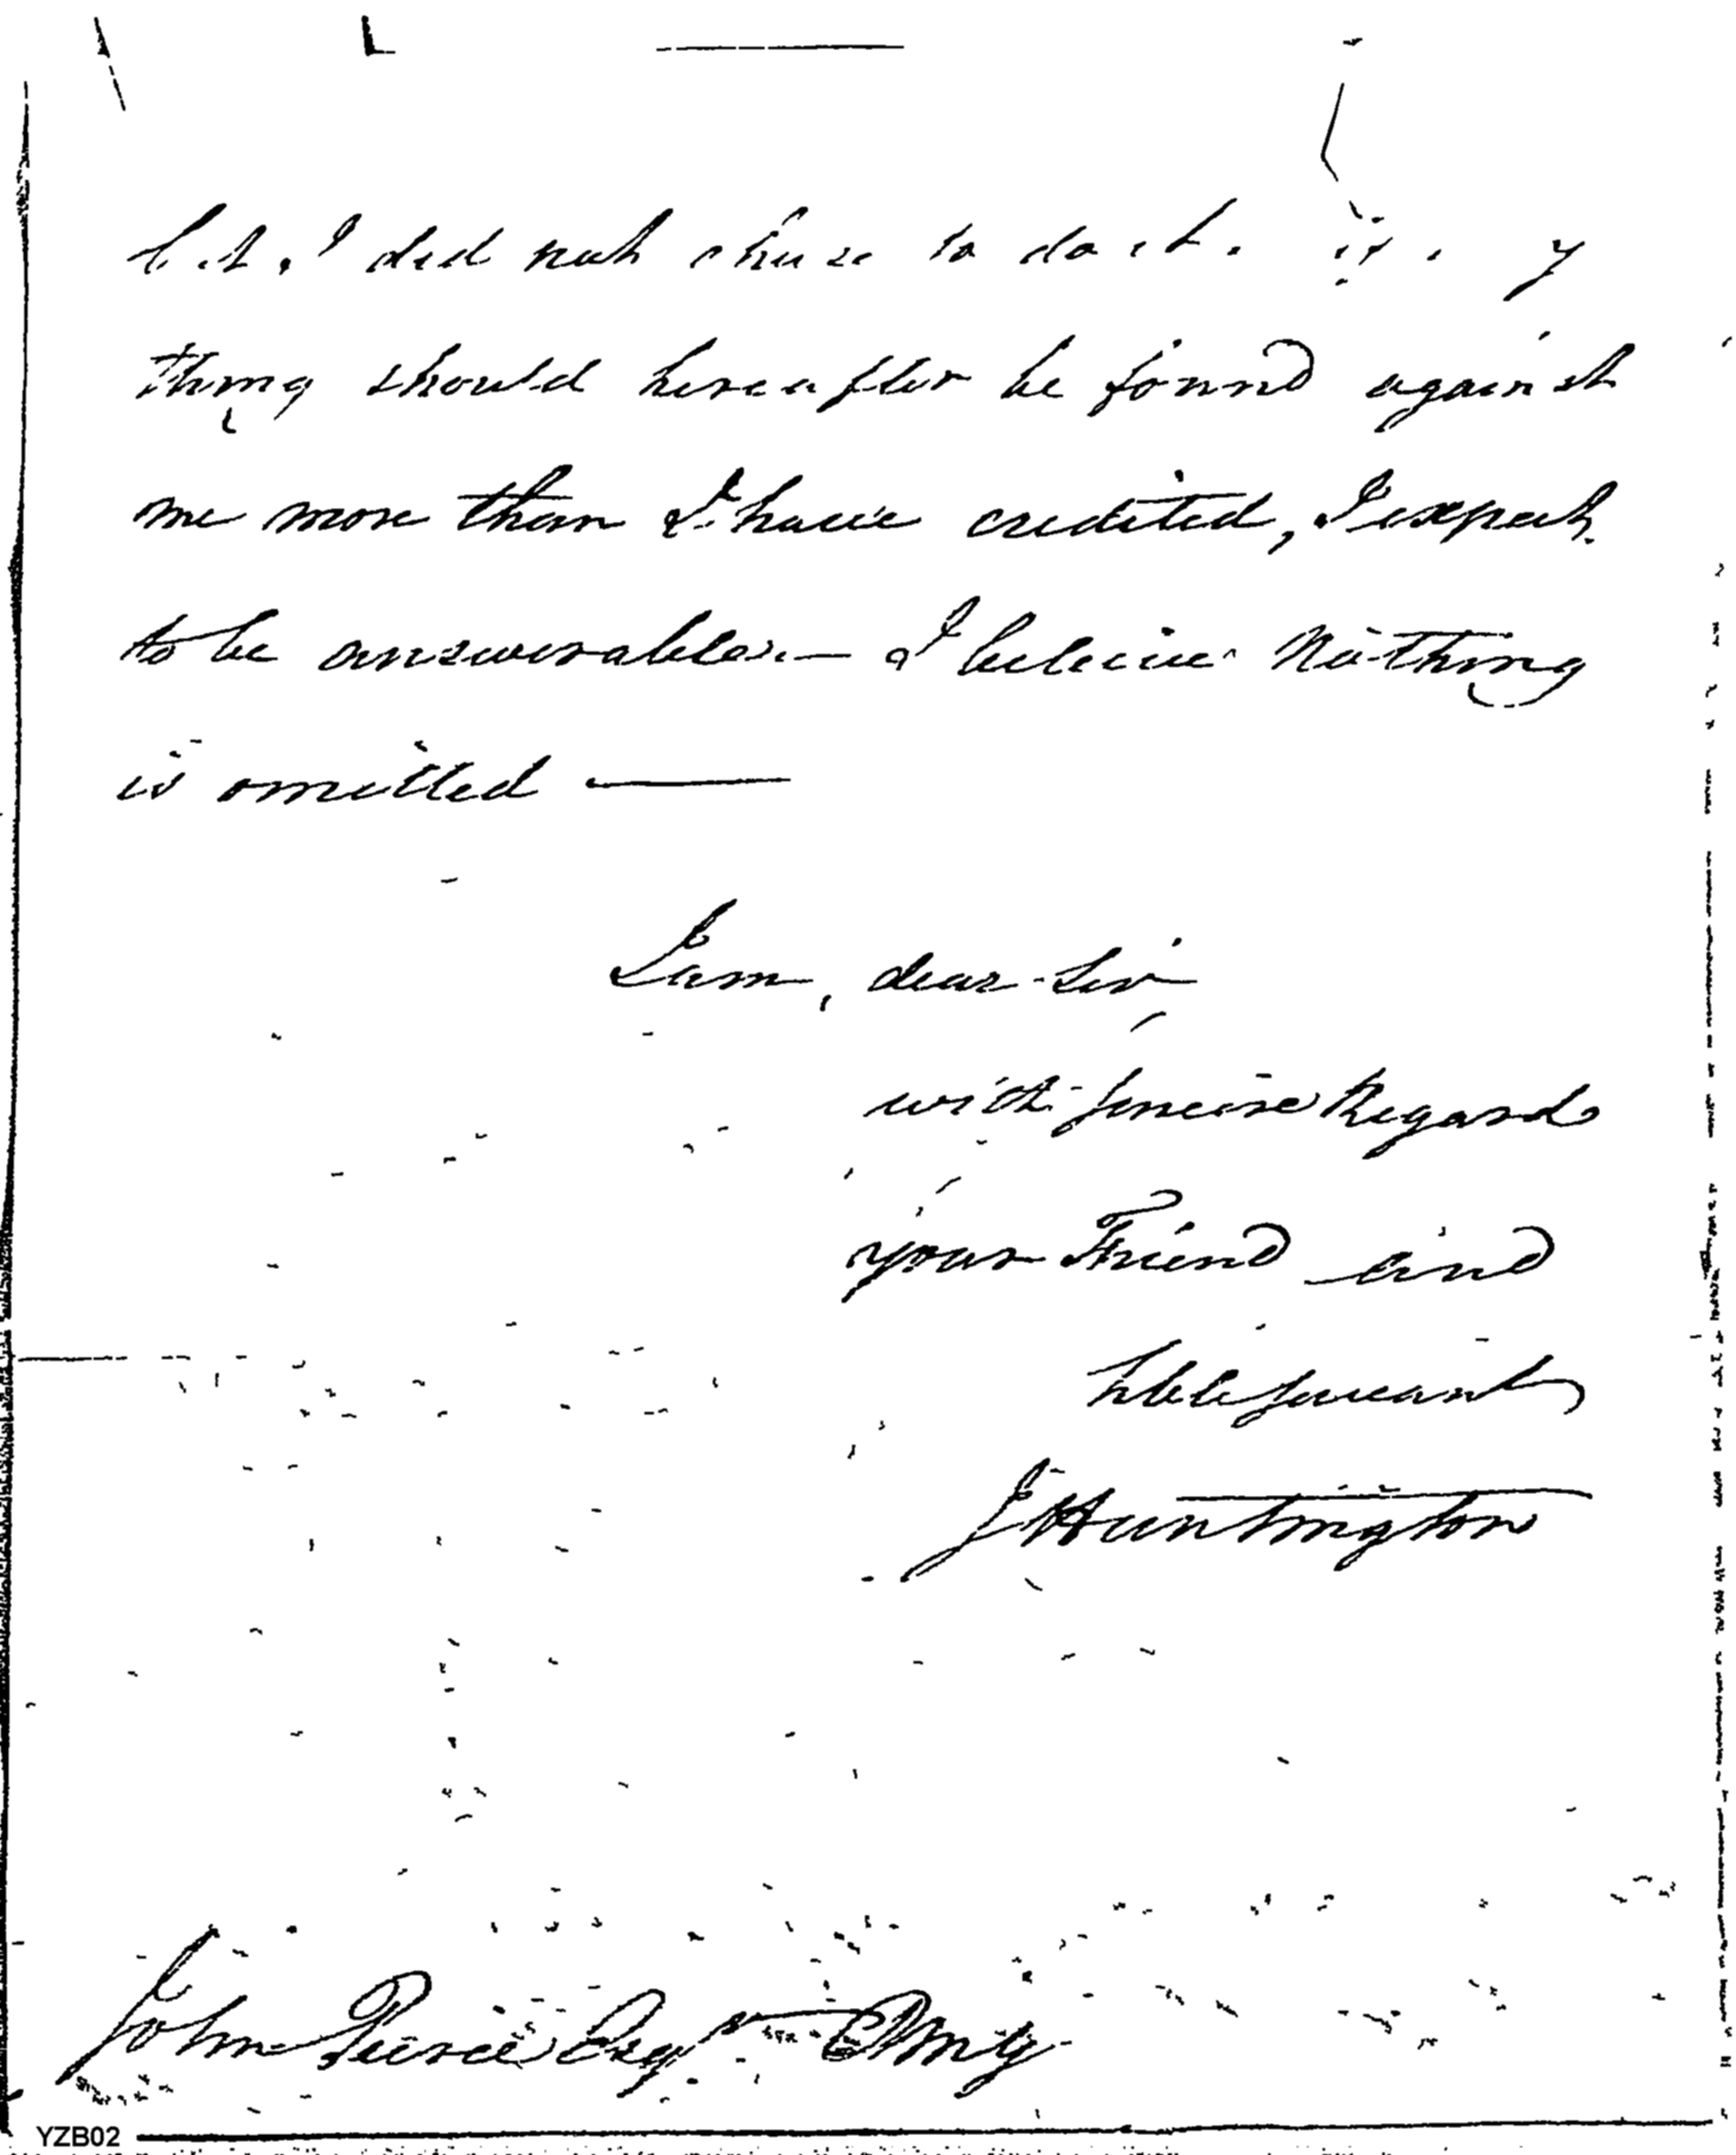 but, I did not chuse to do it. if
thing should hereafter be found against
me more than I have credited, I expect
to be answerable.— I beleive Nothing
is omitted —
I am, dear Sir
with sincere Regard
your Friend and
hble servant
J Huntington
John Pierce Esqr
YZB02